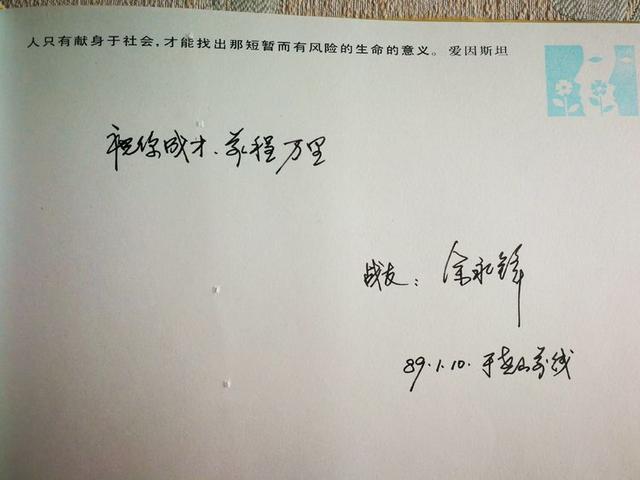 人只有献身于社会，才能找出那短暂而有风险的生命的意义。 爱因斯坦
祝你成才、前程万里
战友： 余永锋
89.1.10.于老山前线